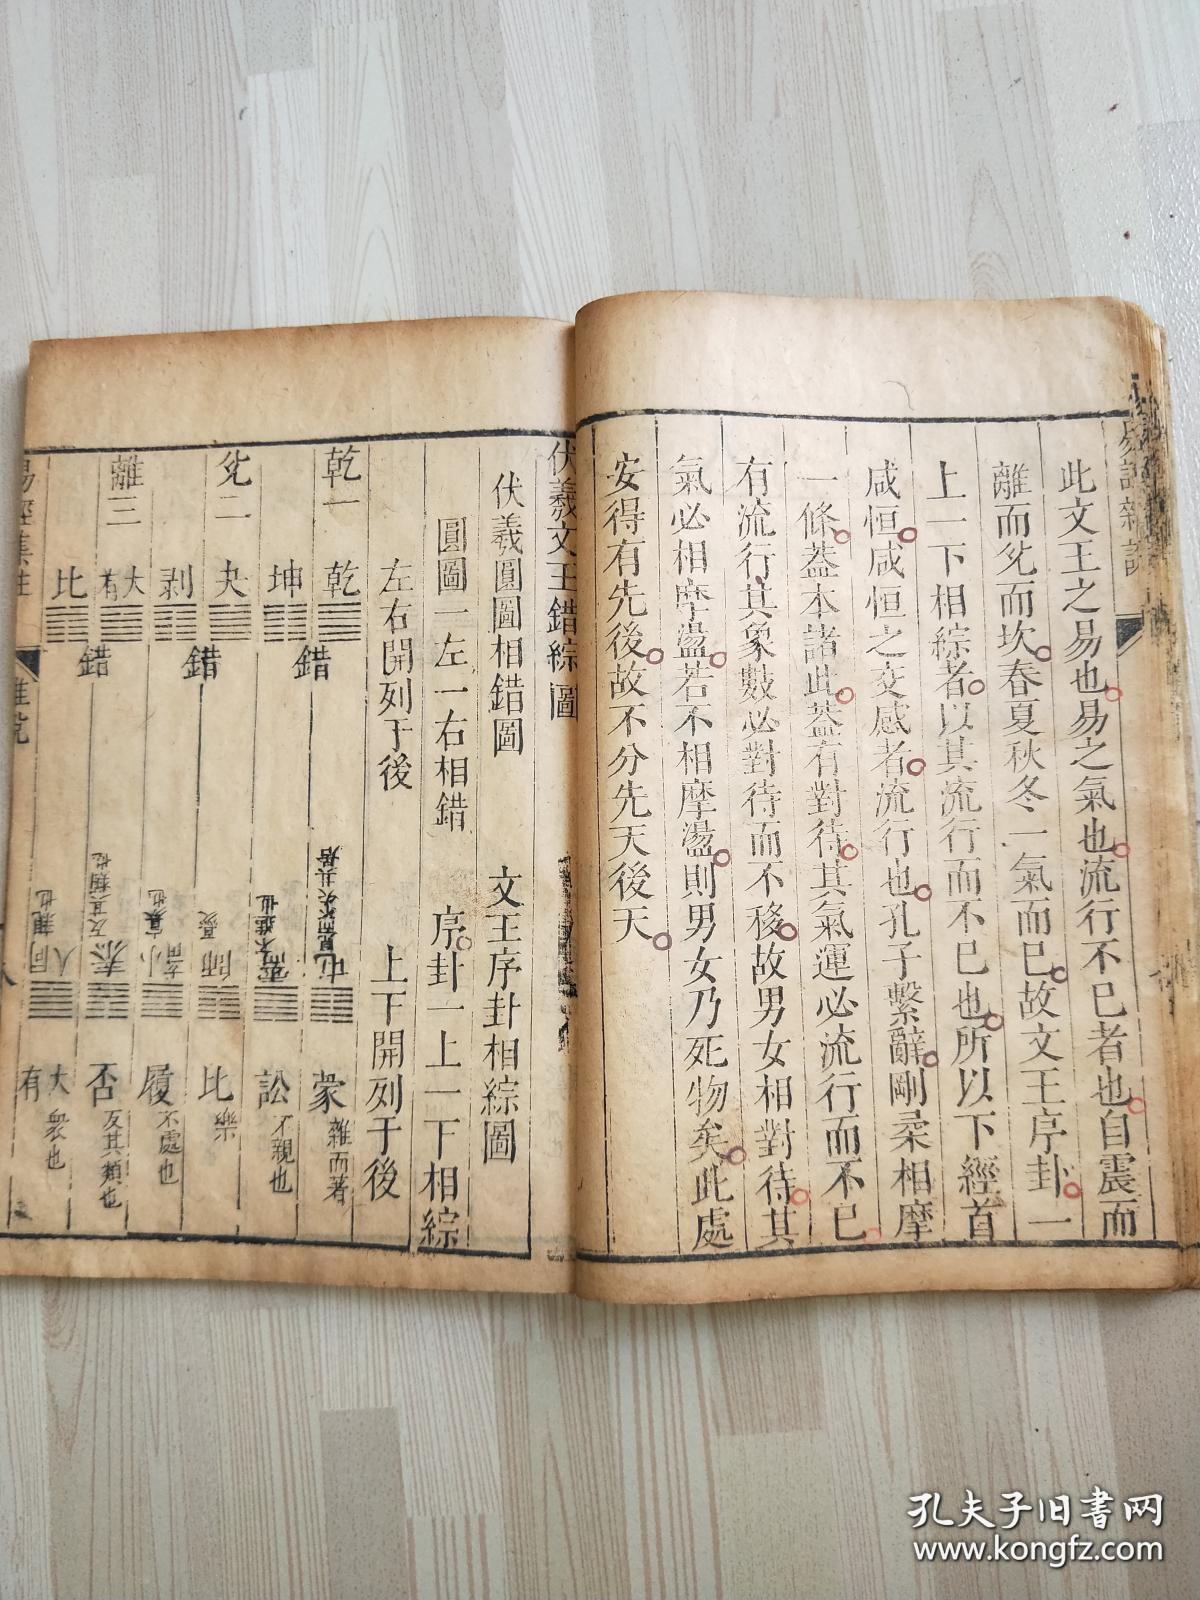 此文王之易也易之氣也流行不已者也自震而
離而兌而坎春夏秋冬一氣而已故文王序卦一
上一下相綜者以其流行而不已也所以下經首
咸恒咸恒之交感者流行也孔子繫辭剛柔相摩
一條蓋本諸此蓋有對待其氣運必流行而不已
有流行其象數必對待而不移故男女相對待其
氣必相摩盪若不相摩盪則男女乃死物矣此處
安得有先後故不分先天後天
伏羲文王錯綜圖
伏羲圓圖相錯圖 文王序卦相綜圖
圓圖一左一右相錯 序卦一上一下相綜
左右開列于後 上下開列于後
乾一 乾 錯 屯見而不失其居 蒙雜而著
坤 需不進也 訟不親也
兌二 夬 錯 師憂 比樂
剥 小畜寡也 履不處也
離三 大有 錯 泰反其類也 否反其類也
比 同人親也 大有衆也
易經集註
孔夫子旧书网
www.kongfz.com